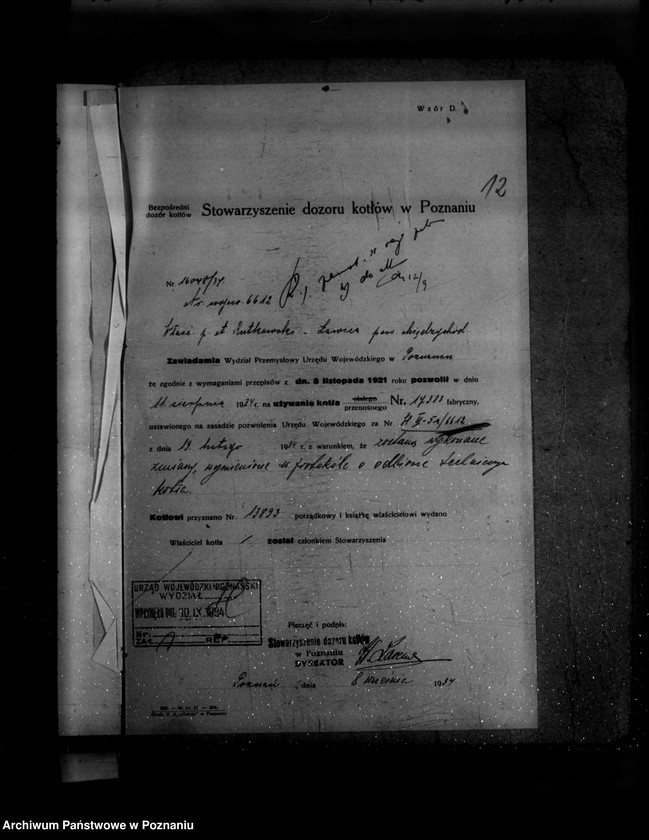 Wzór D.
12
Bezpośredni
dozór kotłów
Stowarzyszenie dozoru kotłów w Poznaniu
Nr. 16048/34
Nr. wojew. 6612
12/9
Rutkowski - pow. Międzychód
Zawiadamia Wydział Przemysłowy Urzędu Wojewódzkiego w Poznaniu
że zgodnie z wymaganiami przepisów z dn. 8 listopada 1921 roku pozwolił w dniu
11 sierpnia 1934 r. na używanie kotła stałego przenośnego Nr. 17333 fabryczny,
ustawionego na zasadzie pozwolenia Urzędu Wojewódzkiego za Nr.
z dnia 19 lutego 1934 r. z warunkiem, że zostaną wykonane
zmiany wymienione w protokóle o odbiorze
kotła.
Kotłowi przyznano Nr. 13893 porządkowy i książkę właścicielowi wydano
Właściciel kotła / został członkiem Stowarzyszenia
URZĄD WOJEWÓDZKI POZNAŃSKI
WYDZIAŁ
30. IX. 1934
Nr.
ZAŁ. REF.
Pieczęć i podpis:
Stowarzyszenie dozoru kotłów
w Poznaniu
DYREKTOR
Poznań, dnia 8 września 1934
Archiwum Państwowe w Poznaniu